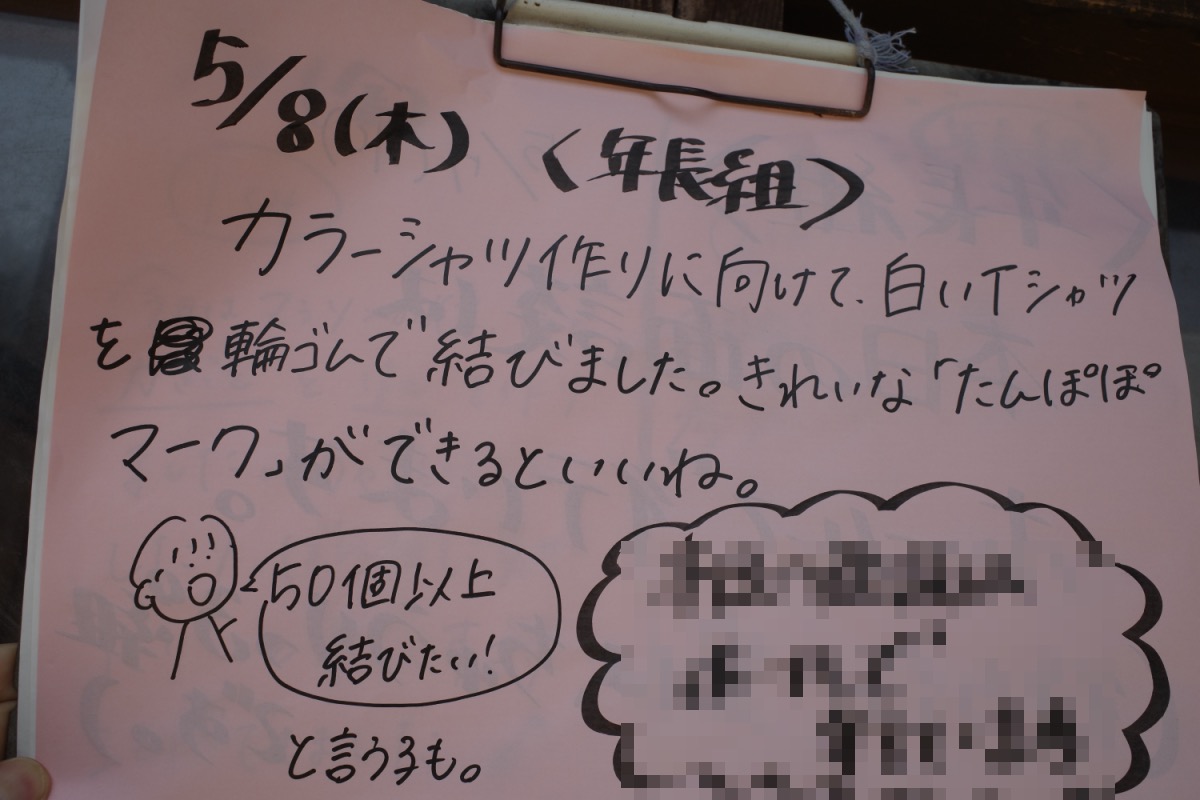 5/8(木) 〈年長組〉
カラーシャツ作りに向けて、白いTシャツ
を輪ゴムで結びました。きれいな「たんぽぽ
マーク」ができるといいね。
50個以上
結びたい!
と言う子も。